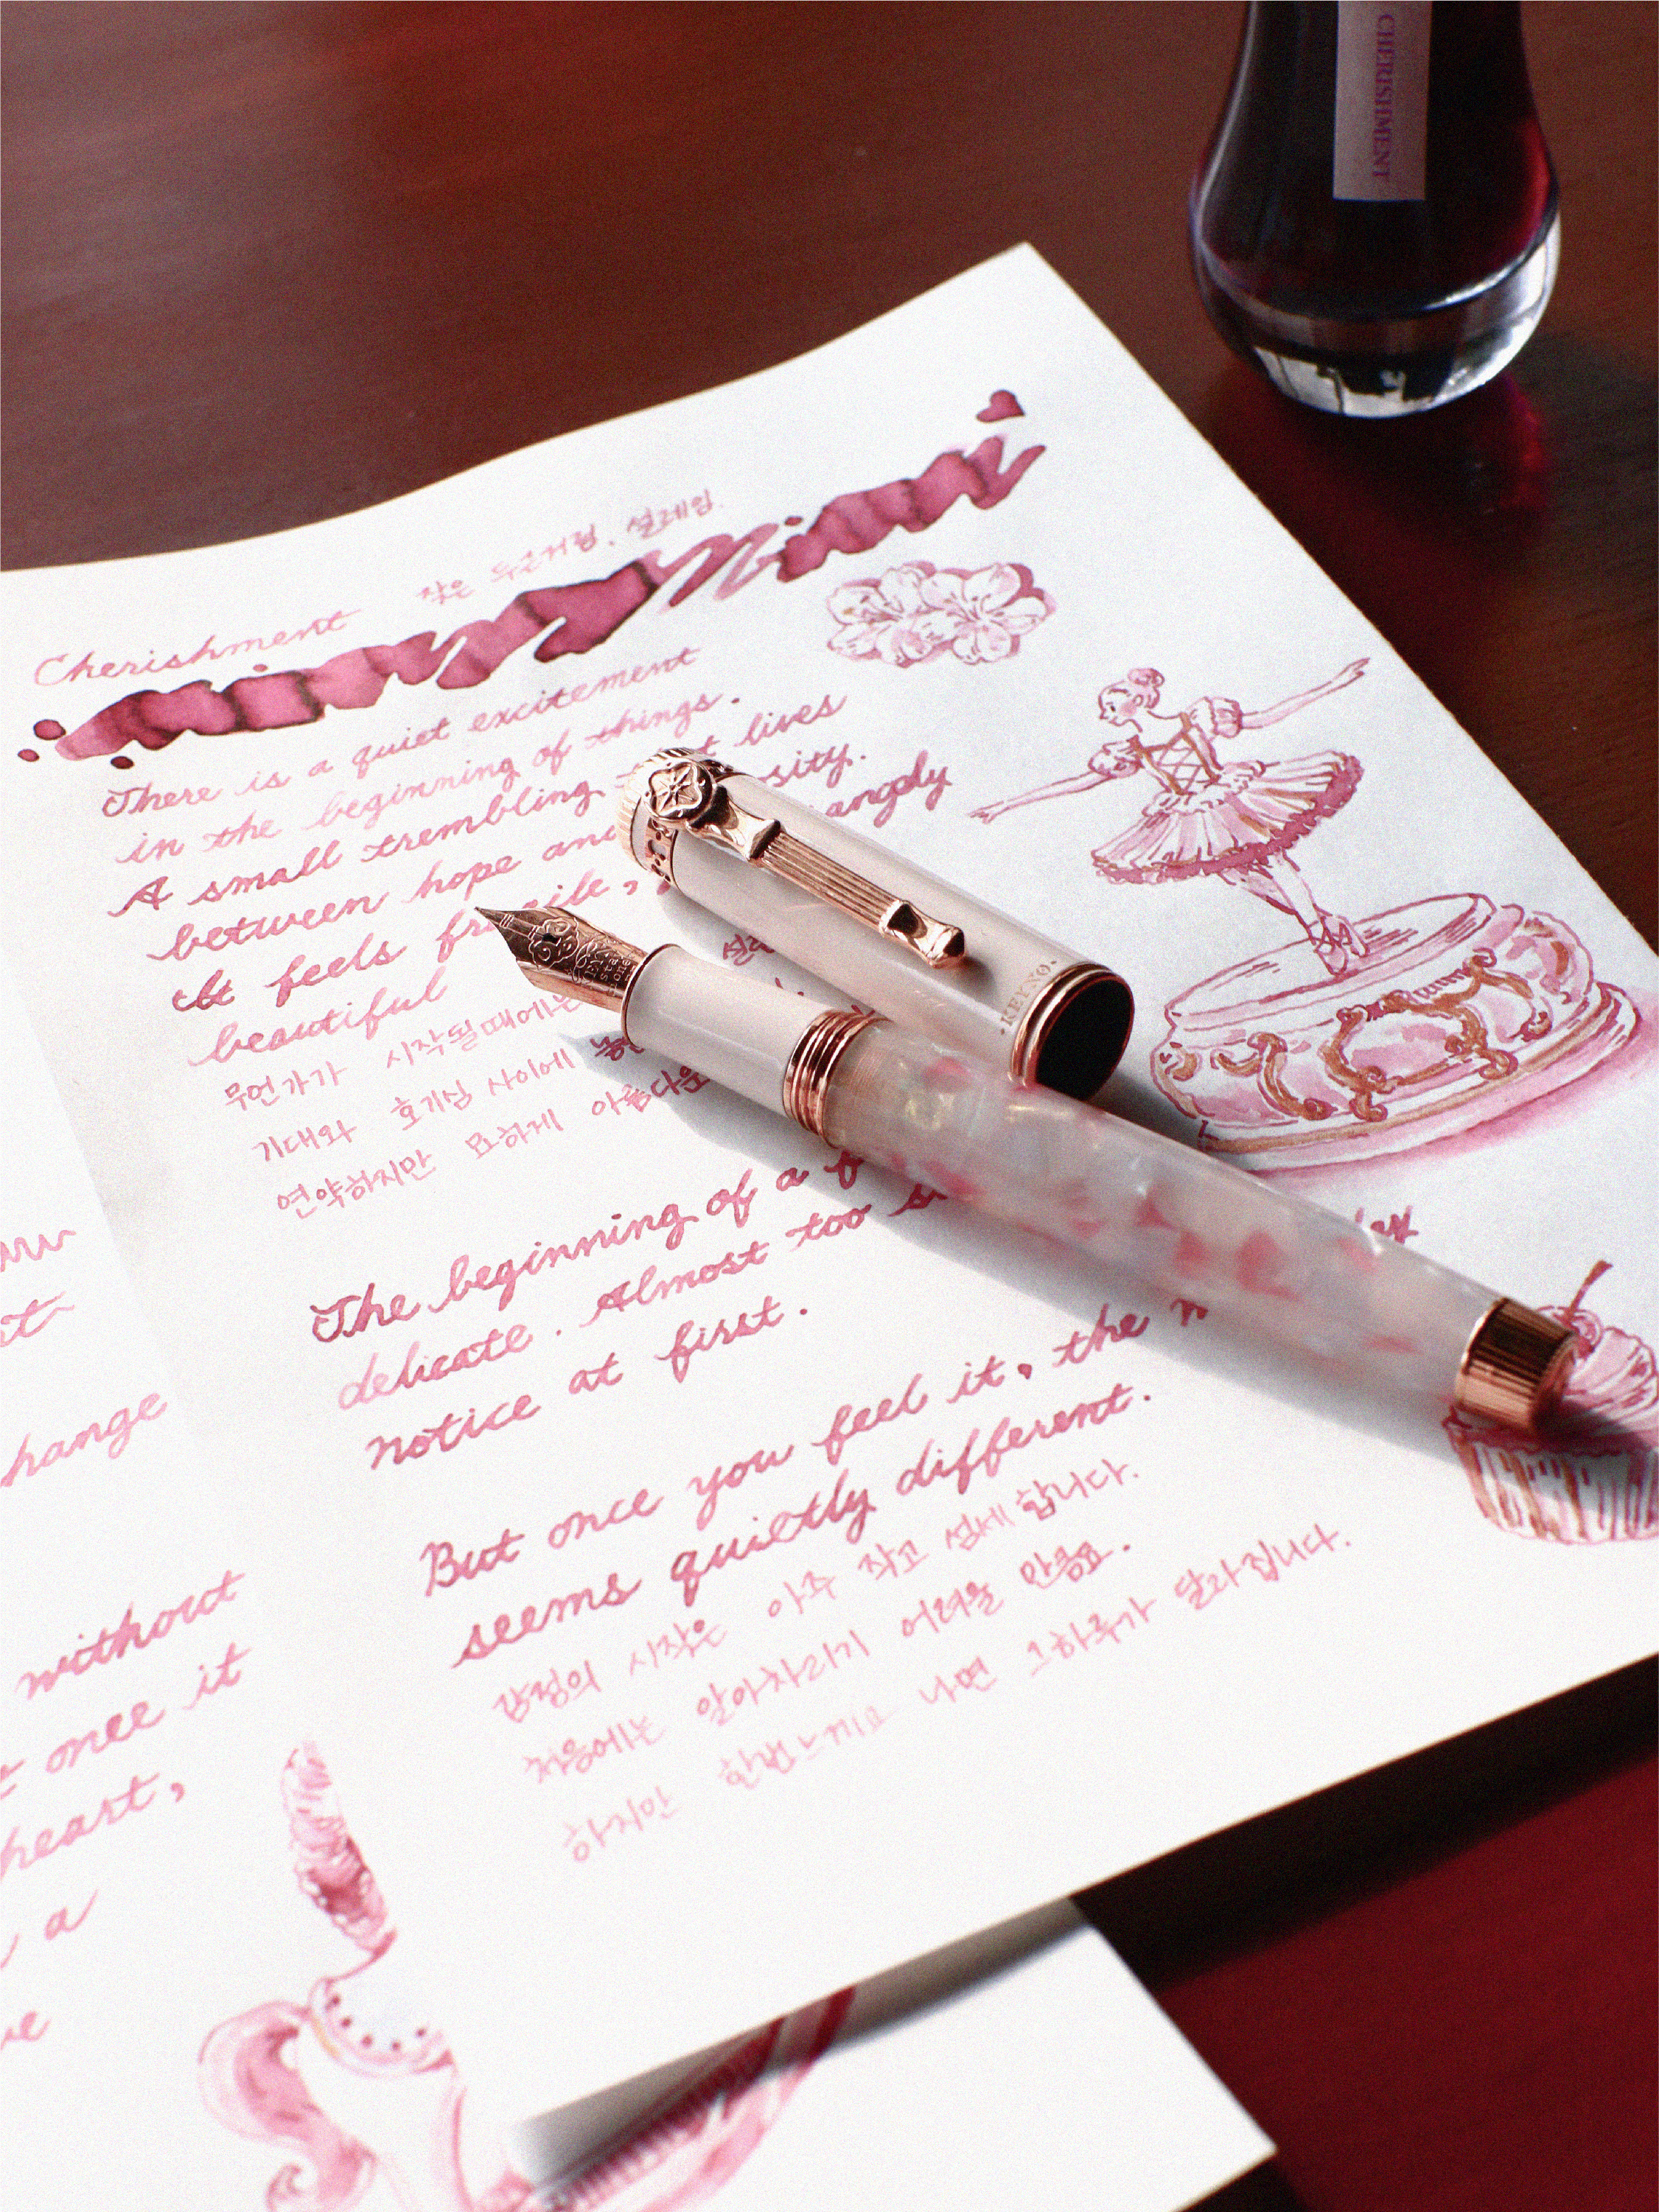 CHERISHMENT
Cherishment 작은 두근거림, 설레임
There is a quiet excitement
in the beginning of things.
A small trembling lives
between hope and
It feels
beautiful
무언가가 시작될때에는
기대와 호기심 사이에
연약하지만 묘하게 아름다운
KEYNO
The beginning of a
delicate. Almost too
notice at first.
But once you feel it, the
seems quietly different.
감정의 시작은 아주 작고 섬세합니다.
처음에는 알아차리기 어려울 만큼요.
하지만 한번 느끼고 나면 그하루가 달라집니다.
hange
without
once it
heart,
a